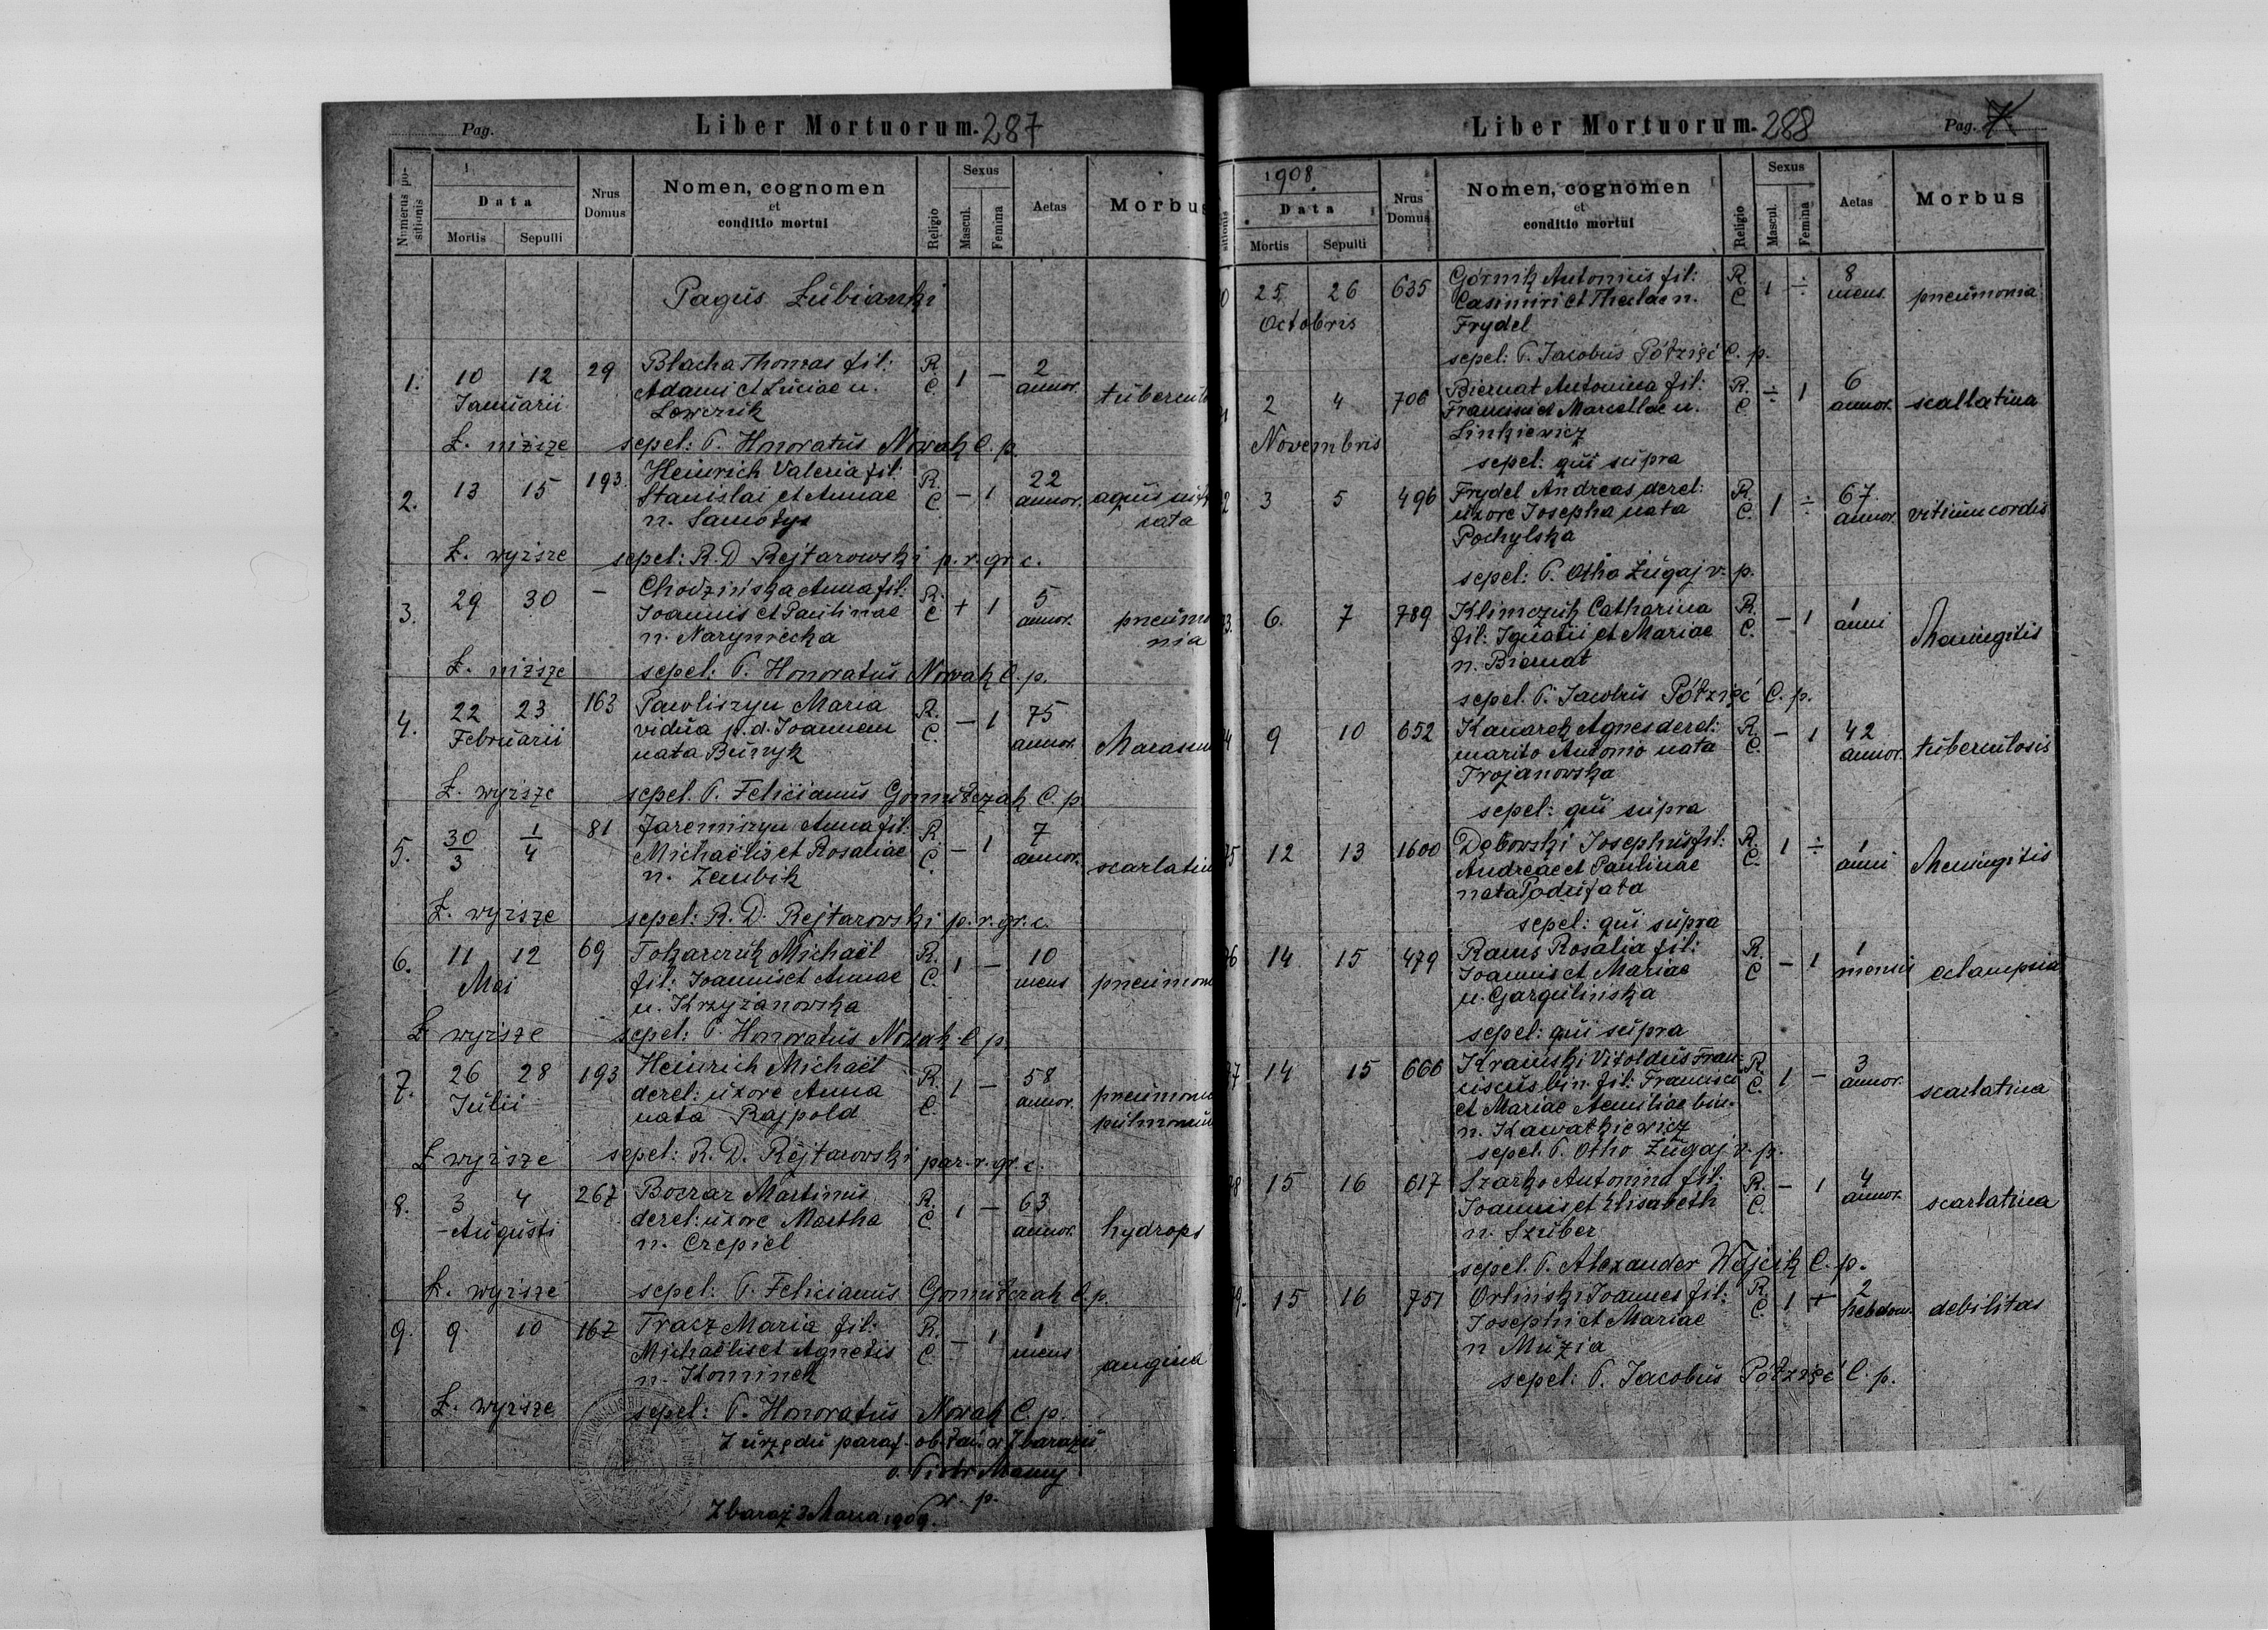 Pag.
Liber Mortuorum. 287
Numerus positionis
Data
Mortis
Sepulti
Nrus Domus
Nomen, cognomen
et
conditio mortui
Religio
Sexus
Mascul.
Femina
Aetas
Morbus
Pagus Łubianki
1. 10 12 29 Blacha Thomas fil: R. 1 – 2
Januarii Adami et Luciae n. C. annor. tubercul
Lowczuk
Ł. niższe sepel: P. Honoratus Nowak C. p.
2. 13 15 193. Heinrich Valeria fil: R. – 1 22
Stanislai et Annae C. annor.
n. Samotys
Ł. wyższe sepel: R. D. Rejtarowski p. r. gr. c.
3. 29 30 – Chodzińska Anna fil: R. + 1 5
Joannis et Paulinae C. annor. pneumo
n. Naryniecka nia
Ł. niższe sepel: P. Honoratus Nowak C. p.
4. 22 23 163 Pawliszyn Maria R. – 1 75
Februarii vidua p. d. Joannem C. annor. Marasm
nata Buczyk
Ł. wyższe sepel. P. Felicianus Gomułczak C. p.
5. 30/3 1/4 81 Jaremiszyn Anna fil: R. – 1 7
Michaëlis et Rosaliae C. annor. scarlatin
n. Zembik
Ł. wyższe sepel: R. D. Rejtarowski p. r. gr. c.
6. 11 12 69 Tokarczuk Michaël R. 1 – 10
Mai fil: Joannis et Annae C. mens pneumon
n. Krzyżanowska
Ł wyższe sepel: P. Honoratus Nowak C p.
7. 26 28 193 Heinrich Michaël R. 1 – 58
Julii derel: uxore Anna C. annor. pneumoni
nata Rajpold pulmonum
Ł wyższe sepel: R. D. Rejtarowski par. r. gr. c.
8. 3 4 267 Boczar Martinus R. 1 – 63
Augusti derel: uxore Martha C. annor. hydrops
n. Czepiel
Ł. wyższe sepel: P. Felicianus Gomułczak C. p.
9. 9 10 167 Tracz Maria fil: R. – 1 1
Michaëlis et Agnetis C. mens angina
n. Kominek
Ł. wyższe sepel: P. Honoratus Nowak C. p.
Z urzędu paraf. ob. łać. w Zbarażu
o. Piotr
Zbaraż 3 Marca 1909. w. p.
Liber Mortuorum. 288
Pag. 7
sitionis
1908.
Data
Mortis
Sepulti
Nrus Domus
Nomen, cognomen
et
conditio mortui
Religio
Sexus
Mascul.
Femina
Aetas
Morbus
0 25 26 635 Górnik Antonius fil: R. 1 ÷ 8
Octobris Casimiri et Theclae n. C. mens. pneumonia
Frydel
sepel: P. Jacobus Półzięć C. p.
1 2 4 706 Biernat Antonina fil: R. ÷ 1 6
Novembris Francisci et Marcellae n. C. annor. scallatina
Linkiewicz
sepel: qui supra
2 3 5 496 Frydel Andreas derel: R. 1 ÷ 67.
uxore Josepha nata C. annor. vitium cordis
Pochylska
sepel: P. Otho Żugaj v. p.
3. 6. 7 789 Klimczuk Catharina R. – 1 1
fil: Ignatii et Mariae C. anni Meningitis
n. Biernat
sepel. P. Jacobus Półzięć C. p.
4 9 10 652 Kanarek Agnes derel: R. – 1 42
marito Antonio nata C. annor. tuberculosis
Trojanowska
sepel: qui supra
5 12 13 1600 Dębowski Josephus fil: R. 1 ÷ 1
Andreae et Paulinae C. anni Meningitis
nata Podufała
sepel: qui supra
6 14 15 479 Rams Rosalia fil: R. – 1 1
Joannis et Mariae C mensis eclampsia
n. Gargulińska
sepel: qui supra
7 14 15 666 Kramski Vitoldus Fran- R. 1 – 3
ciscus bin. fil: Francisci C. annor. scarlatina
et Mariae Aemiliae bin.
n. Kawałkiewicz
sepel. P. Otho Żugaj v. p.
8 15 16 617 Szarko Antonina fil: R. – 1 4
Joannis et Elisabeth C. annor. scarlatina
n. Szuber
sepel. P. Alexander Wójcik C. p.
9. 15 16 751 Orliński Joannes fil: R. 1 + 2
Josephi et Mariae C. hebdom. debilitas
n Muzia
sepel: P. Jacobus Półzięć C. p.